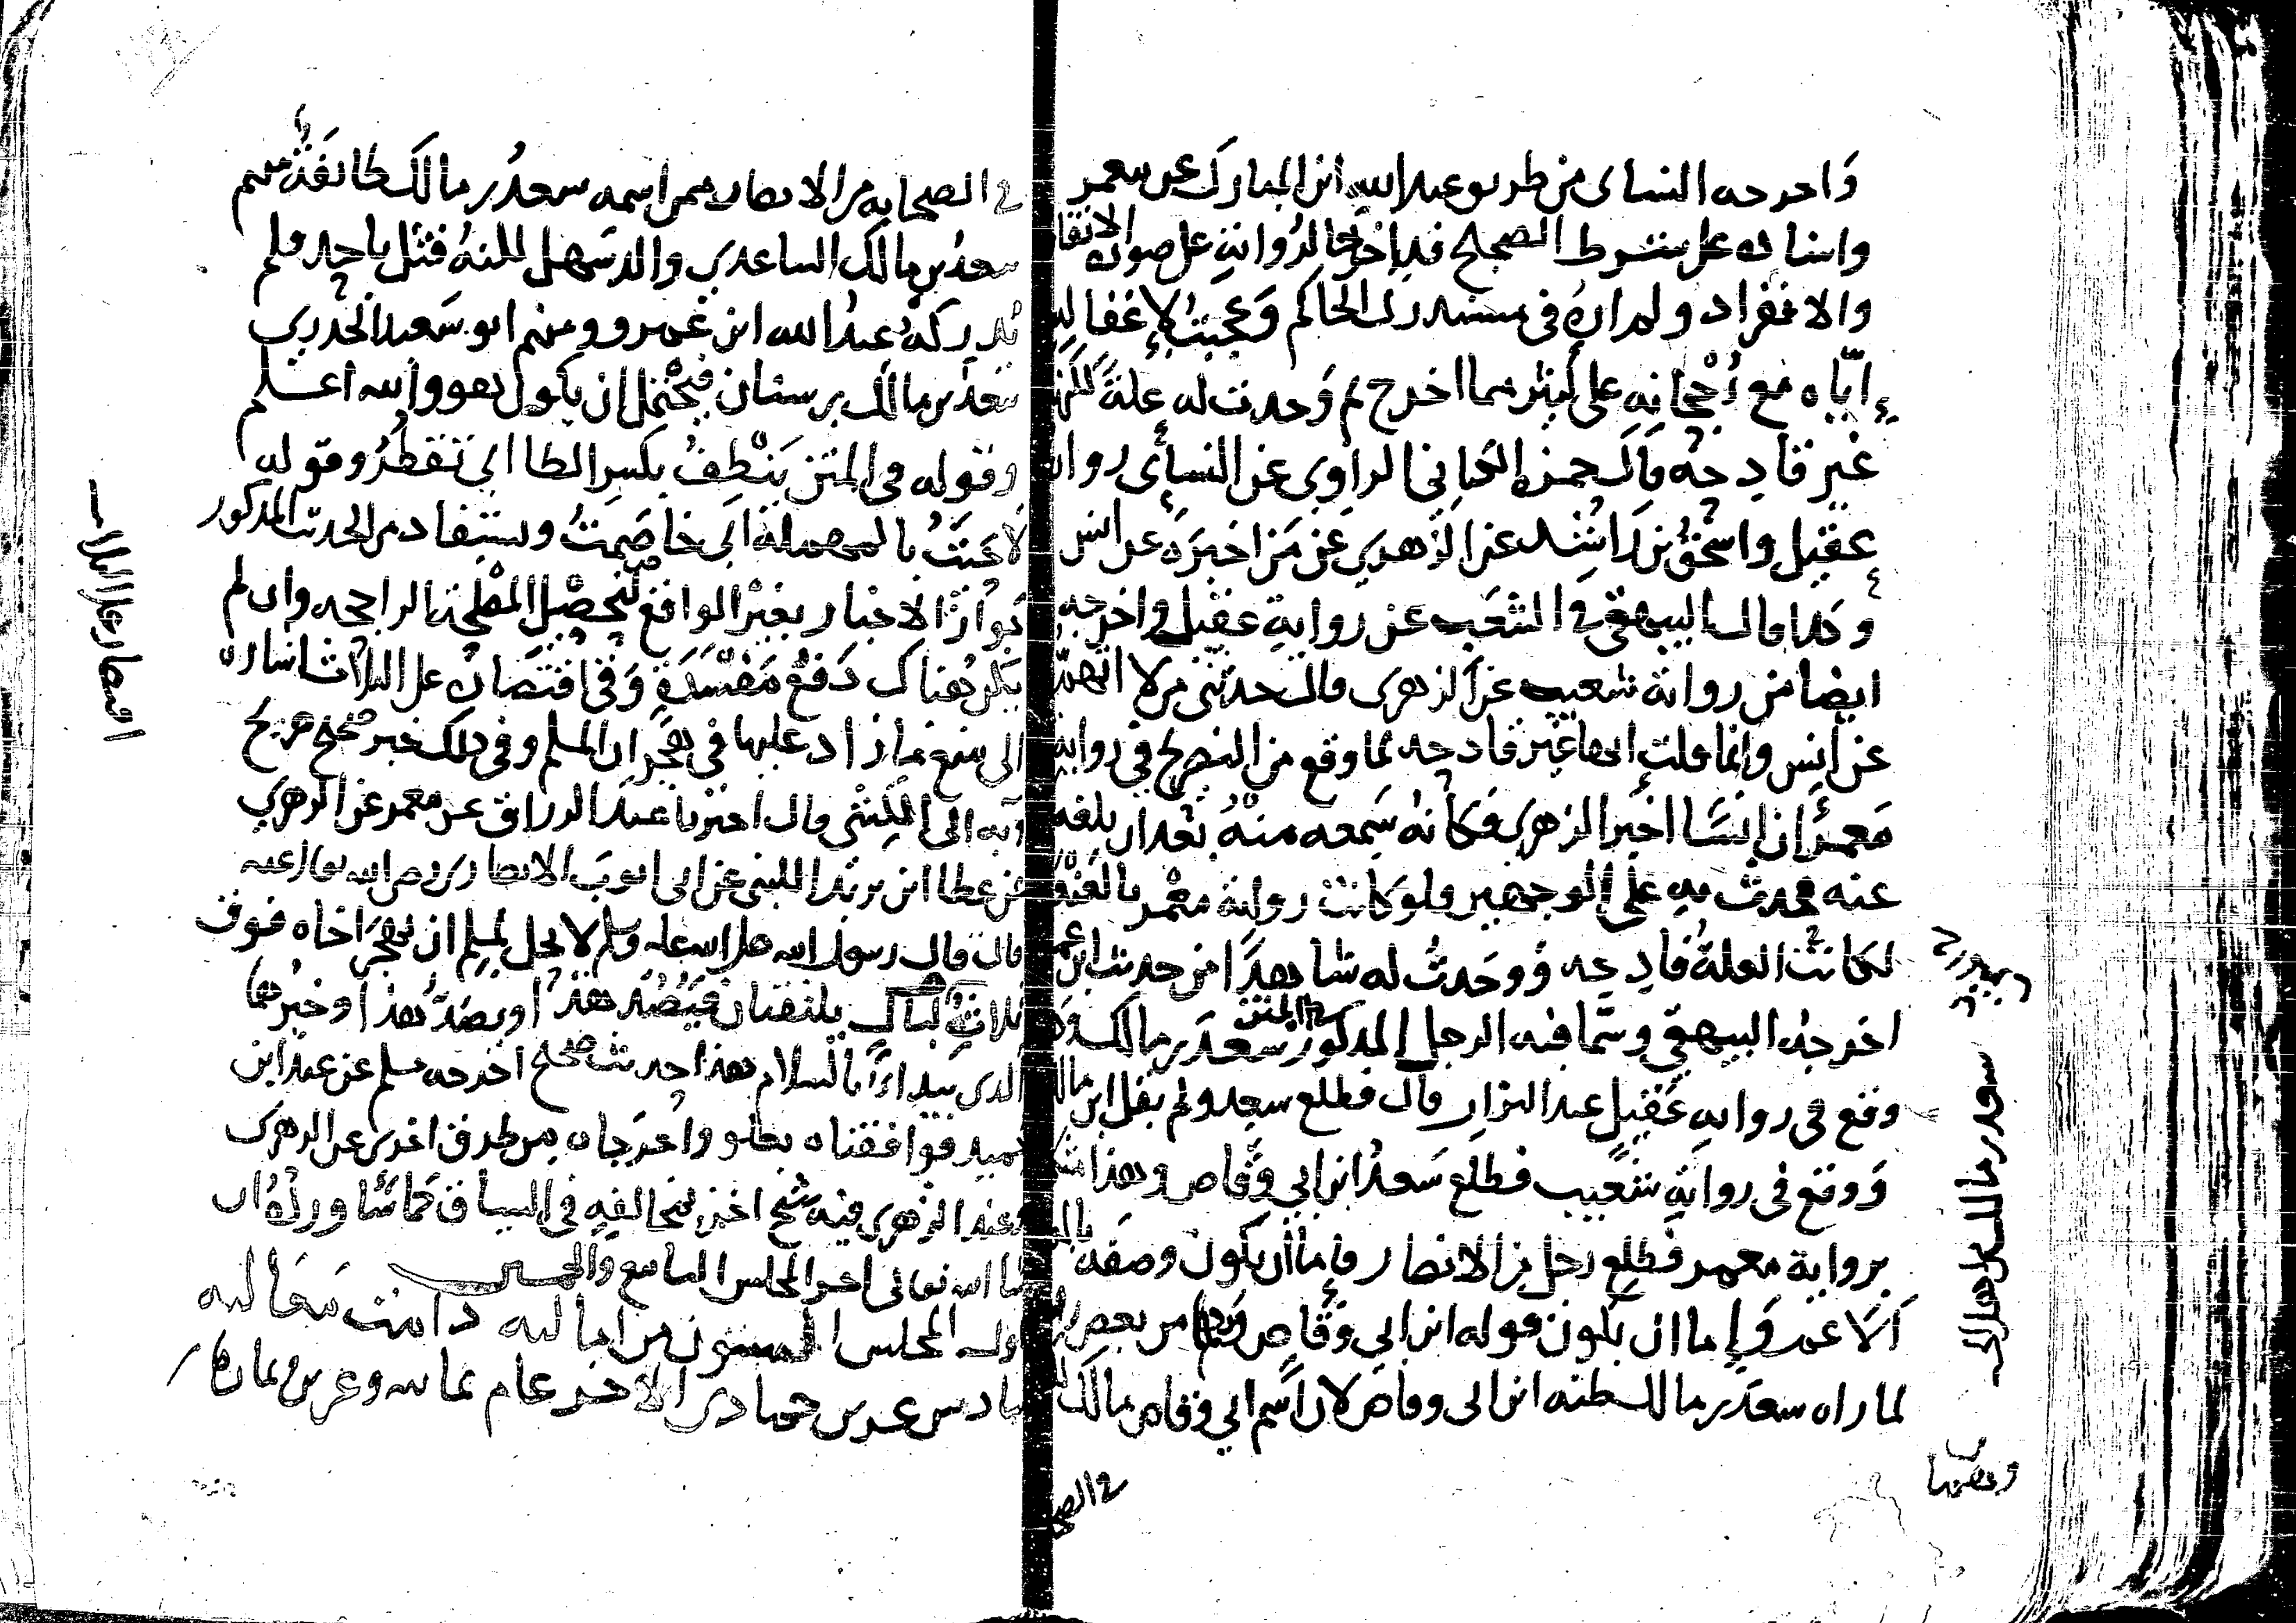 واخرجه النساى من طريق عبد الله ابن المبارك عن معمر
واسناده على شرط الصحيح فقد اخرجا لرواته على صورة الاتفاق
والانفراد ولم اره فى مستدرك الحاكم وعجبت لإغفاله
إياه مع رجحانه على كثير مما اخرج ثم وجدت له علة لكنها
غير قادحة قال حمزه الكناني الراوي عن النسأى رواه
عقيل واسحق بن راشد عن الزهري عن من اخبره عن انس
وكذا قال البيهقي في الشعب عن رواية عقيل واخرجه
ايضا من رواية شعيب عن الزهري قال حدثني من لا اتهم
عن انس وانما قلت انها غير قادحه لما وقع من التصريح في رواية
معمر ان انسا اخبر الزهرى فكانه سمعه منه بعد ان بلغه
عنه فحدث به على الوجهين ولو كانت رواية معمر بالعنعنة
لكانت العلة قادحه ووجدت له شاهدا من حديث ابن عمر
اخرجه البيهقي وسما فيه الرجل المذكور في المتن سعد بن مالك
وقع في رواية عقيل عند البزار قال فطلع سعد ولم يقل ابن مالك
ووقع فى رواية شعيب فطلع سعد ابن ابي وقاص وهذا
برواية معمر فطلع رجل من الانصار فإما أن يكون وصفه
الاعم وإما ان يكون قوله ابن ابي وقاص من بعض
لما راه سعد بن مالك ظنه ابن ابى وقاص لان اسم ابي وقاص مالك
في الصح
سعد بن مالك
في الصحابه من الانصار ممن اسمه سعد بن مالك طائفة منهم
سعد بن مالك الساعدي والد سهل لكنه قتل باحد فلم
يدركه عبد الله ابن عمرو ومنهم ابو سعيد الخدري
سعد بن مالك بن سنان فيحتمل ان يكون هو والله اعلم
وقوله في المتن ينطف بكسر الطا اي تقطر وقوله
لاحيت بالمهملة اي خاصمت ويستفاد من الحديث المذكور
جواز الاخبار بغير الواقع لتحصيل المصلحة الراجحه وان لم
يكن هناك دفع مفسدة وفى اقتصاره على الثلاث اشارة
الى منع ما زاد عليها في هجران المسلم وفى ذلك خبر صحيح صريح
وبه الى الكشي قال اخبرنا عبد الرزاق عن معمر عن الزهري
عن عطا ابن يزيد الليثى عن ابى ايوب الانصاري رضى الله تعالى عنه
قال قال رسول الله صلى الله عليه وسلم لا يحل لمسلم ان يهجر اخاه فوق
ثلاث ليال يلتقيان فيصد هذا او يصد هذا وخيرهما
الذي يبدأ بالسلام هذا حديث صحيح اخرجه مسلم عن عبد ابن
حميد فوافقناه بعلو واخرجاه من طرق اخرى عن الزهري
عند الزهرى فيه شيخ اخر نخالفه في السياق كما سنورده ان
شا الله تعالى اخر المجلس التاسع والخمسين
المجلس الستون من اماليه دامت معاليه
سادس عشرين جمادى الاخر عام ثمانيه وعشرين وثمان مائه